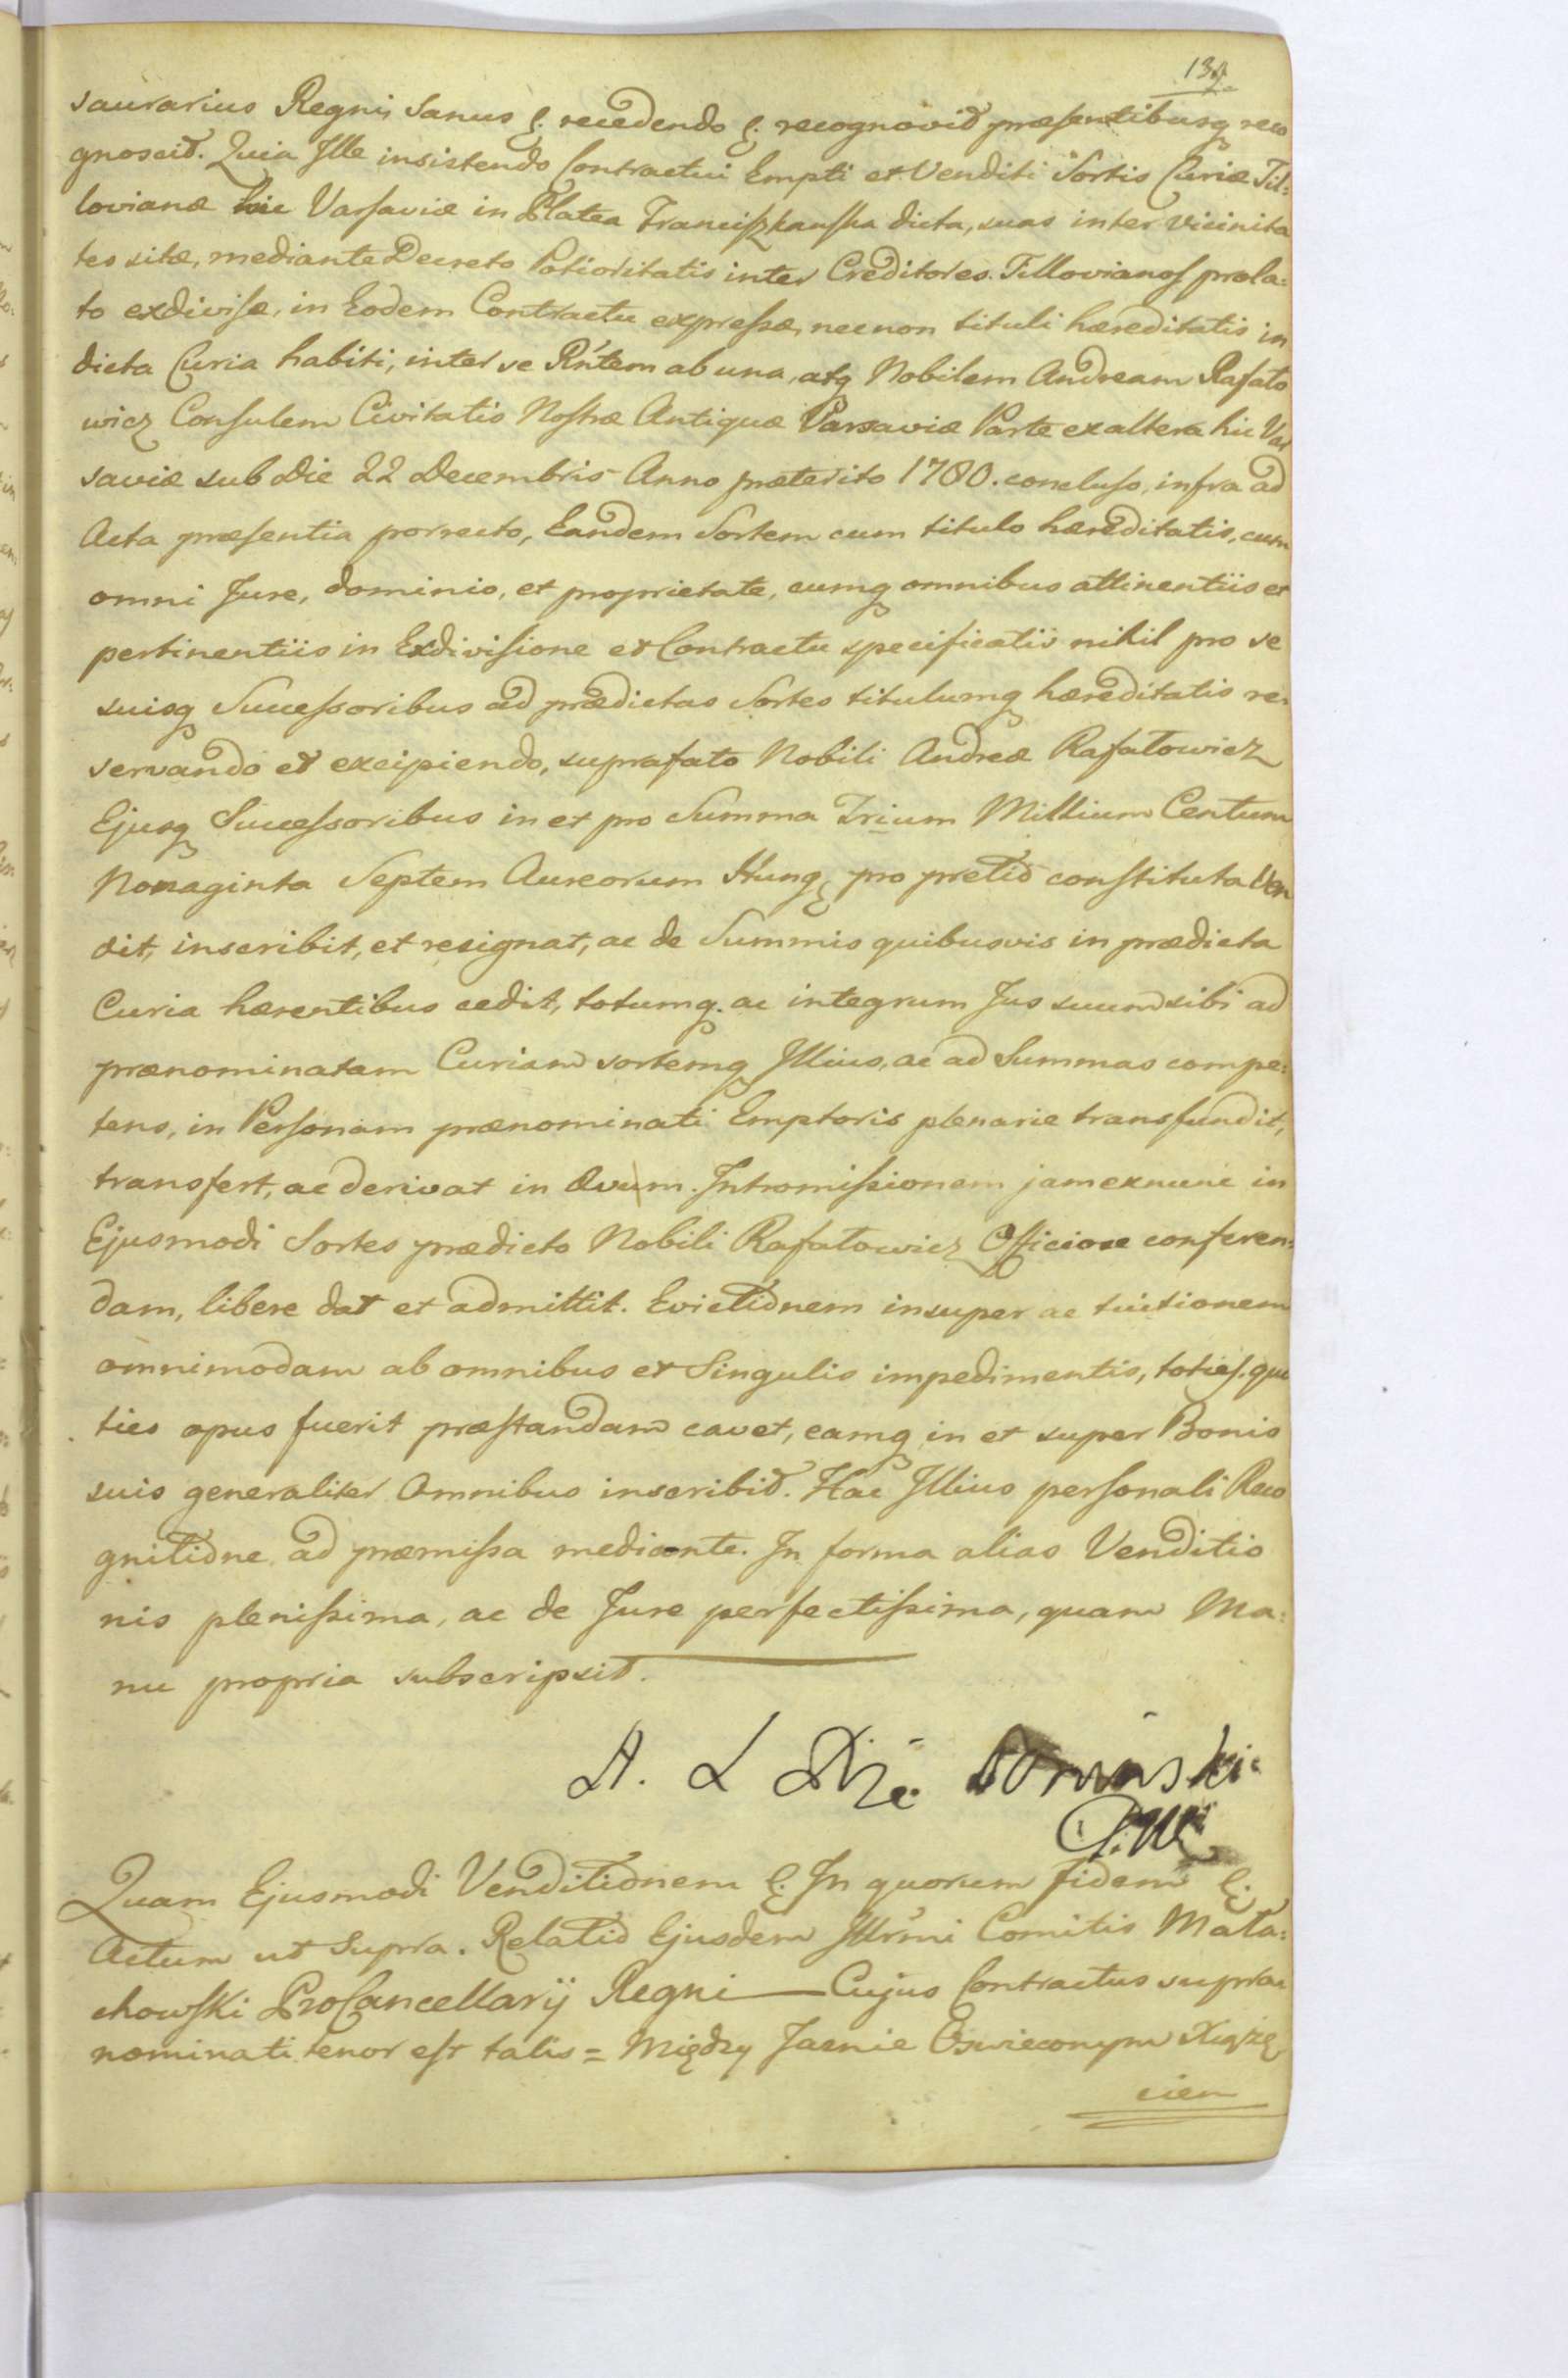 saurarius Regni, Sanus &. recedendo &. recognovit præsentibusq reco
gnoscit. Quia Ille insistendo Contractui Empti et Venditi Sortis Curiæ Til:
lovianæ hic Varsaviæ in Platea Franciszkanska dicta, suas inter vicinita
tes sitæ, mediante Decreto Potioritatis inter Creditores Tillovianos prola:
to exdivisæ, in Eodem Contractu expressæ, necnon tituli hæreditatis in
dicta Curia habiti, inter se Rńtem ab una, atq Nobilem Andream Rafało
wicz Consulem Civitatis Nostræ Antiquæ Varsaviæ Parte ex altera hic Var
saviæ sub Die 22 Decembris Anno præterito 1780. concluso, infra ad
Acta præsentia porrecto, Eandem Sortem cum titulo hæreditatis, cum
omni Jure, dominio, et proprietate, cumq omnibus attinentiis et
pertinentiis in Exdivisione et Contractu specificatis nihil pro se
suisq Successoribus ad prædictas Sortes titulumq hæreditatis re:
servando et excipiendo, suprafato Nobili Andreæ Rafałowicz
Ejusq Successoribus in et pro Summa Trium Millium Centum
Nonaginta Septem Aureorum Hung, pro pretio constituta Ven
dit, inscribit, et resignat, ac de Summis quibusvis in prædicta
Curia hærentibus cedit, totumq. ac integrum Jus suum sibi ad
prænominatam Curiam sortemq Illius, ac ad Summas compe:
tens, in Personam prænominati Emptoris plenarie transfundit,
transfert, ac derivat in Ævum. Intromissionem jam exnunc in
Ejusmodi Sortes prædicto Nobili Rafałowicz Officiose conferen:
dam, libere dat et admittit. Evictionem insuper ac tuitionem
omnimodam ab omnibus et Singulis impedimentis, toties. quo
ties opus fuerit præstandam cavet, eamq in et super Bonis
suis generaliter Omnibus inscribit. Hac Illius personali Reco
gnitione ad præmissa mediante. In forma alias Venditio
nis plenissima, ac de Jure perfectissima, quam Ma:
nu propria subscripsit.
A. L
Quam Ejusmodi Venditionem &. In quorum fidem &.
Actum ut Supra. Relatio Ejusdem Illrmi Comitis Mała:
chowski ProCancellarij Regni — Cujus Contractus supra
nominati tenor est talis = Między Jaśnie Oswieconym Xiążę
ciem